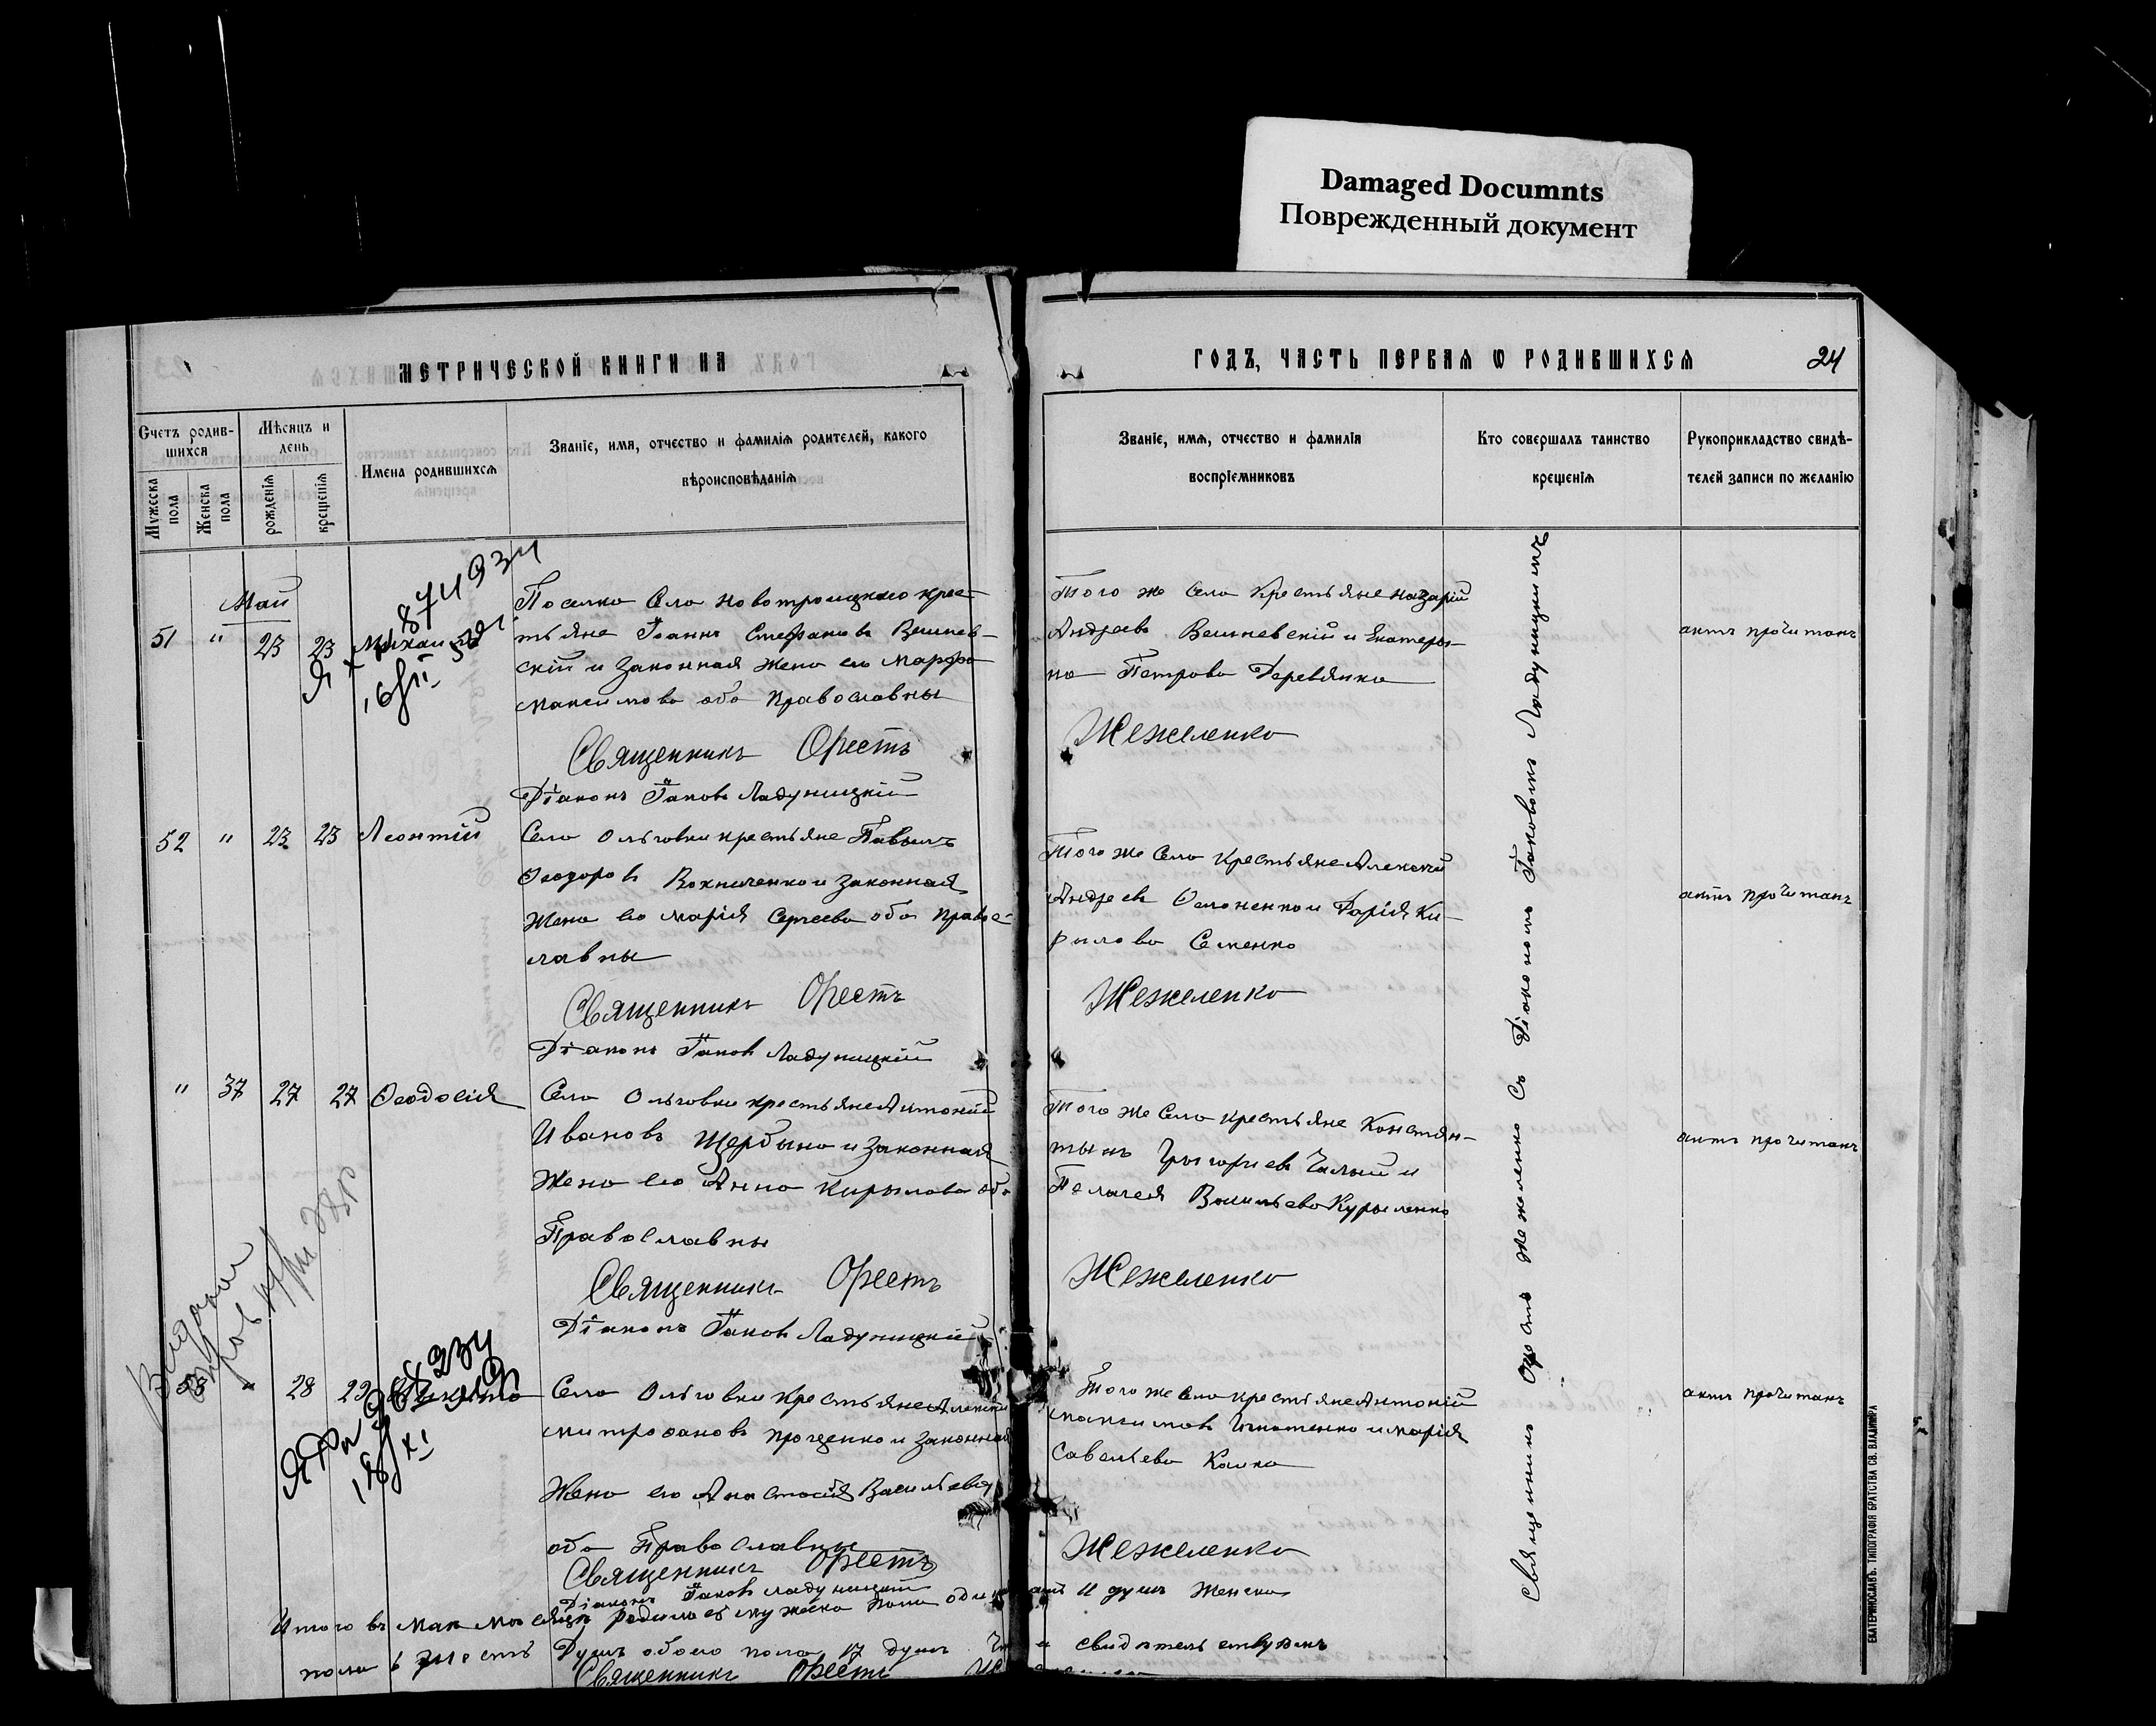 Damaged Documnts
Поврежденный документ
МЕТРИЧЕСКОЙ КНИГИ НА
ГОДЪ, ЧАСТЬ ПЕРВАЯ Ѡ РОДИВШИХСЯ
24
Счетъ родив-
шихся
Мужеска
пола
Женска
пола
Мѣсяцъ и
день
рожденія
крещенія
Имена родившихся
Званіе, имя, отчество и фамилія родителей, какого
вѣроисповѣданія
Званіе, имя, отчество и фамилія
воспріемниковъ
Кто совершалъ таинство
крещенія
Рукоприкладство свидѣ-
телей записи по желанію
Май
51 " 23 23 Михаил
Поселка Села Новотроицкаго крес-
тьяне Іоаннъ Стефановъ Вешнев-
скій и законная жена его Марфа
Максимова оба православны
Священникъ Орестъ
Діаконъ Іаковъ Ладуницкій
Того же Села Крестьяне Назарій
Андреевъ Вешневскій и Екатеры-
на Петрова Деревянка
Жежеленко
актъ прочитанъ
52 " 23 23 Леонтій
Села Ольговки крестьяне Павелъ
Ѳеодоровъ и законная
жена его Марія Сергеева оба правос-
лавны
Священникъ Орестъ
Діаконъ Іаковъ Ладуницкій
Того же Села крестьяне Алексѣй
Андреевъ и Дарія Ки-
рылова Семенко
Жежеленко
актъ прочитанъ
" 37 27 27 Ѳеодосія
Села Ольговки крестьяне Антоній
Ивановъ Щербына и законная
жена его Анна Кирылова оба
Православны
Священникъ Орестъ
Діаконъ Іаковъ Ладуницкій
Того же Села крестьяне Констан-
тынъ Грыгорiевъ Чалый и
Пелагея Васильева Курыленко
Жежеленко
актъ прочитанъ
53 " 28 29 Никита
Села Ольговки крестьяне Алексѣй
Митрофановъ Проценко и законная
жена его Анастасія Васильева
оба Православны
Священникъ Орестъ
Діаконъ Іаковъ Ладуницкій
Того же Села крестьяне Антоній
Максимовъ Игнатенко и Марія
Савельева
Жежеленко
актъ прочитанъ
Священникъ Орестъ Жежеленко съ Діакономъ Іаковомъ Ладуницкимъ
Итого въ Маѣ мѣсяцѣ родилось мужеска пола 11 душъ женска
пола 6 шесть Душъ обоего пола 17 душъ свидѣтельствуемъ
Священникъ Орестъ
ЕКАТЕРИНОСЛАВЪ. ТИПОГРАФІЯ БРАТСТВА СВ. ВЛАДИМІРА